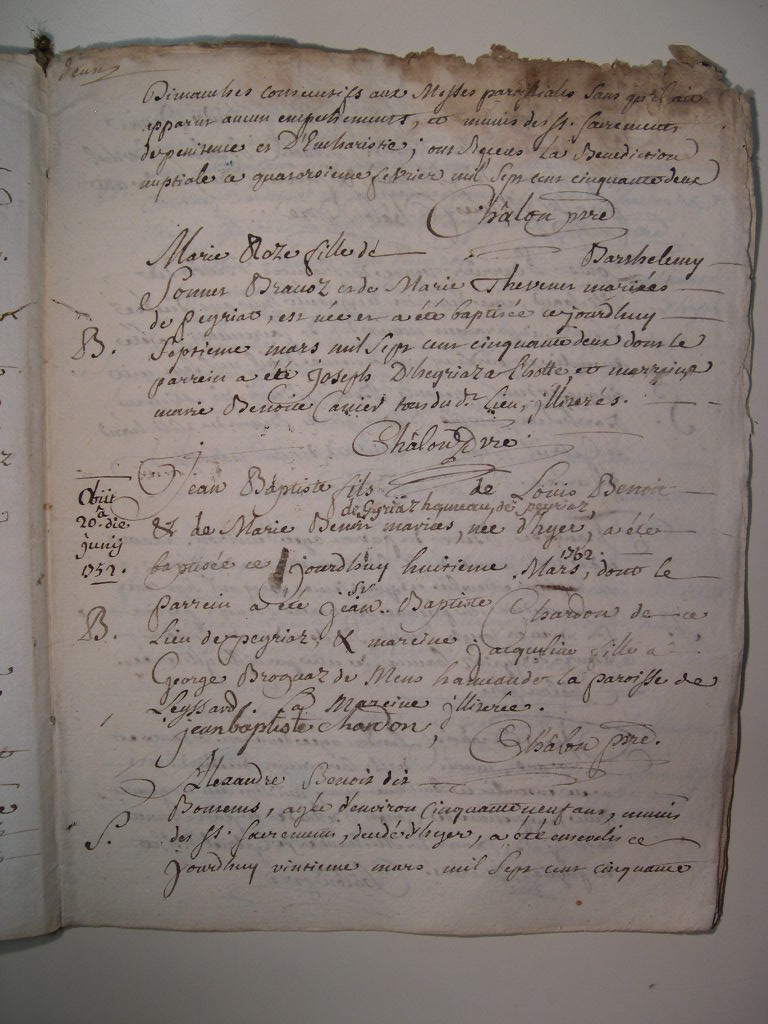 deux
Dimanches consecutifs aux Messes paroissiales sans qu'il ait
apparut aucun empechement, et munis des st. Sacrements
de penitence et D'Eucharistie; ont Receus La Benediction
nuptiale ce quatorzieme fevrier mil Sept cent cinquante deux
Châlon prre
Marie Roze fille de Barthelemy
Sonnet Bravoz et de Marie Thevenet mariées
de peyriat, est née et a été baptisée ce jourdhuy
B. Septieme mars mil Sept cent cinquante deux dont le
parrein a été joseph D'heyriaz et marreine
marie Benoite Canier tous du dt. Lieu, illiterés.
Châlon prre
Jean Baptiste fils de Louis Benoit
de Gyriaz hameau de peyriaz,
Obiit
a
20. die
junij
1752.
& de Marie Benoit mariées, née d'hyer, a été
baptisée ce jourdhuy huitieme Mars, 1752. dont le
parrein a été jean Baptiste Chardon de ce
B. Lieu de peyriaz, & mareine jacqueline fille a
George Broquaz de Mens hameau de la paroisse de
Leyssard. La Mareine illiterée.
jean baptiste chardon, Châlon prre.
Alexandre Benoit dit
Bonsens, agé d'environ cinquante neuf ans, munis
S. des st. Sacrements, decedé d'hyer, a été enseveli ce
jourdhuy vintieme mars mil Sept cent cinquante